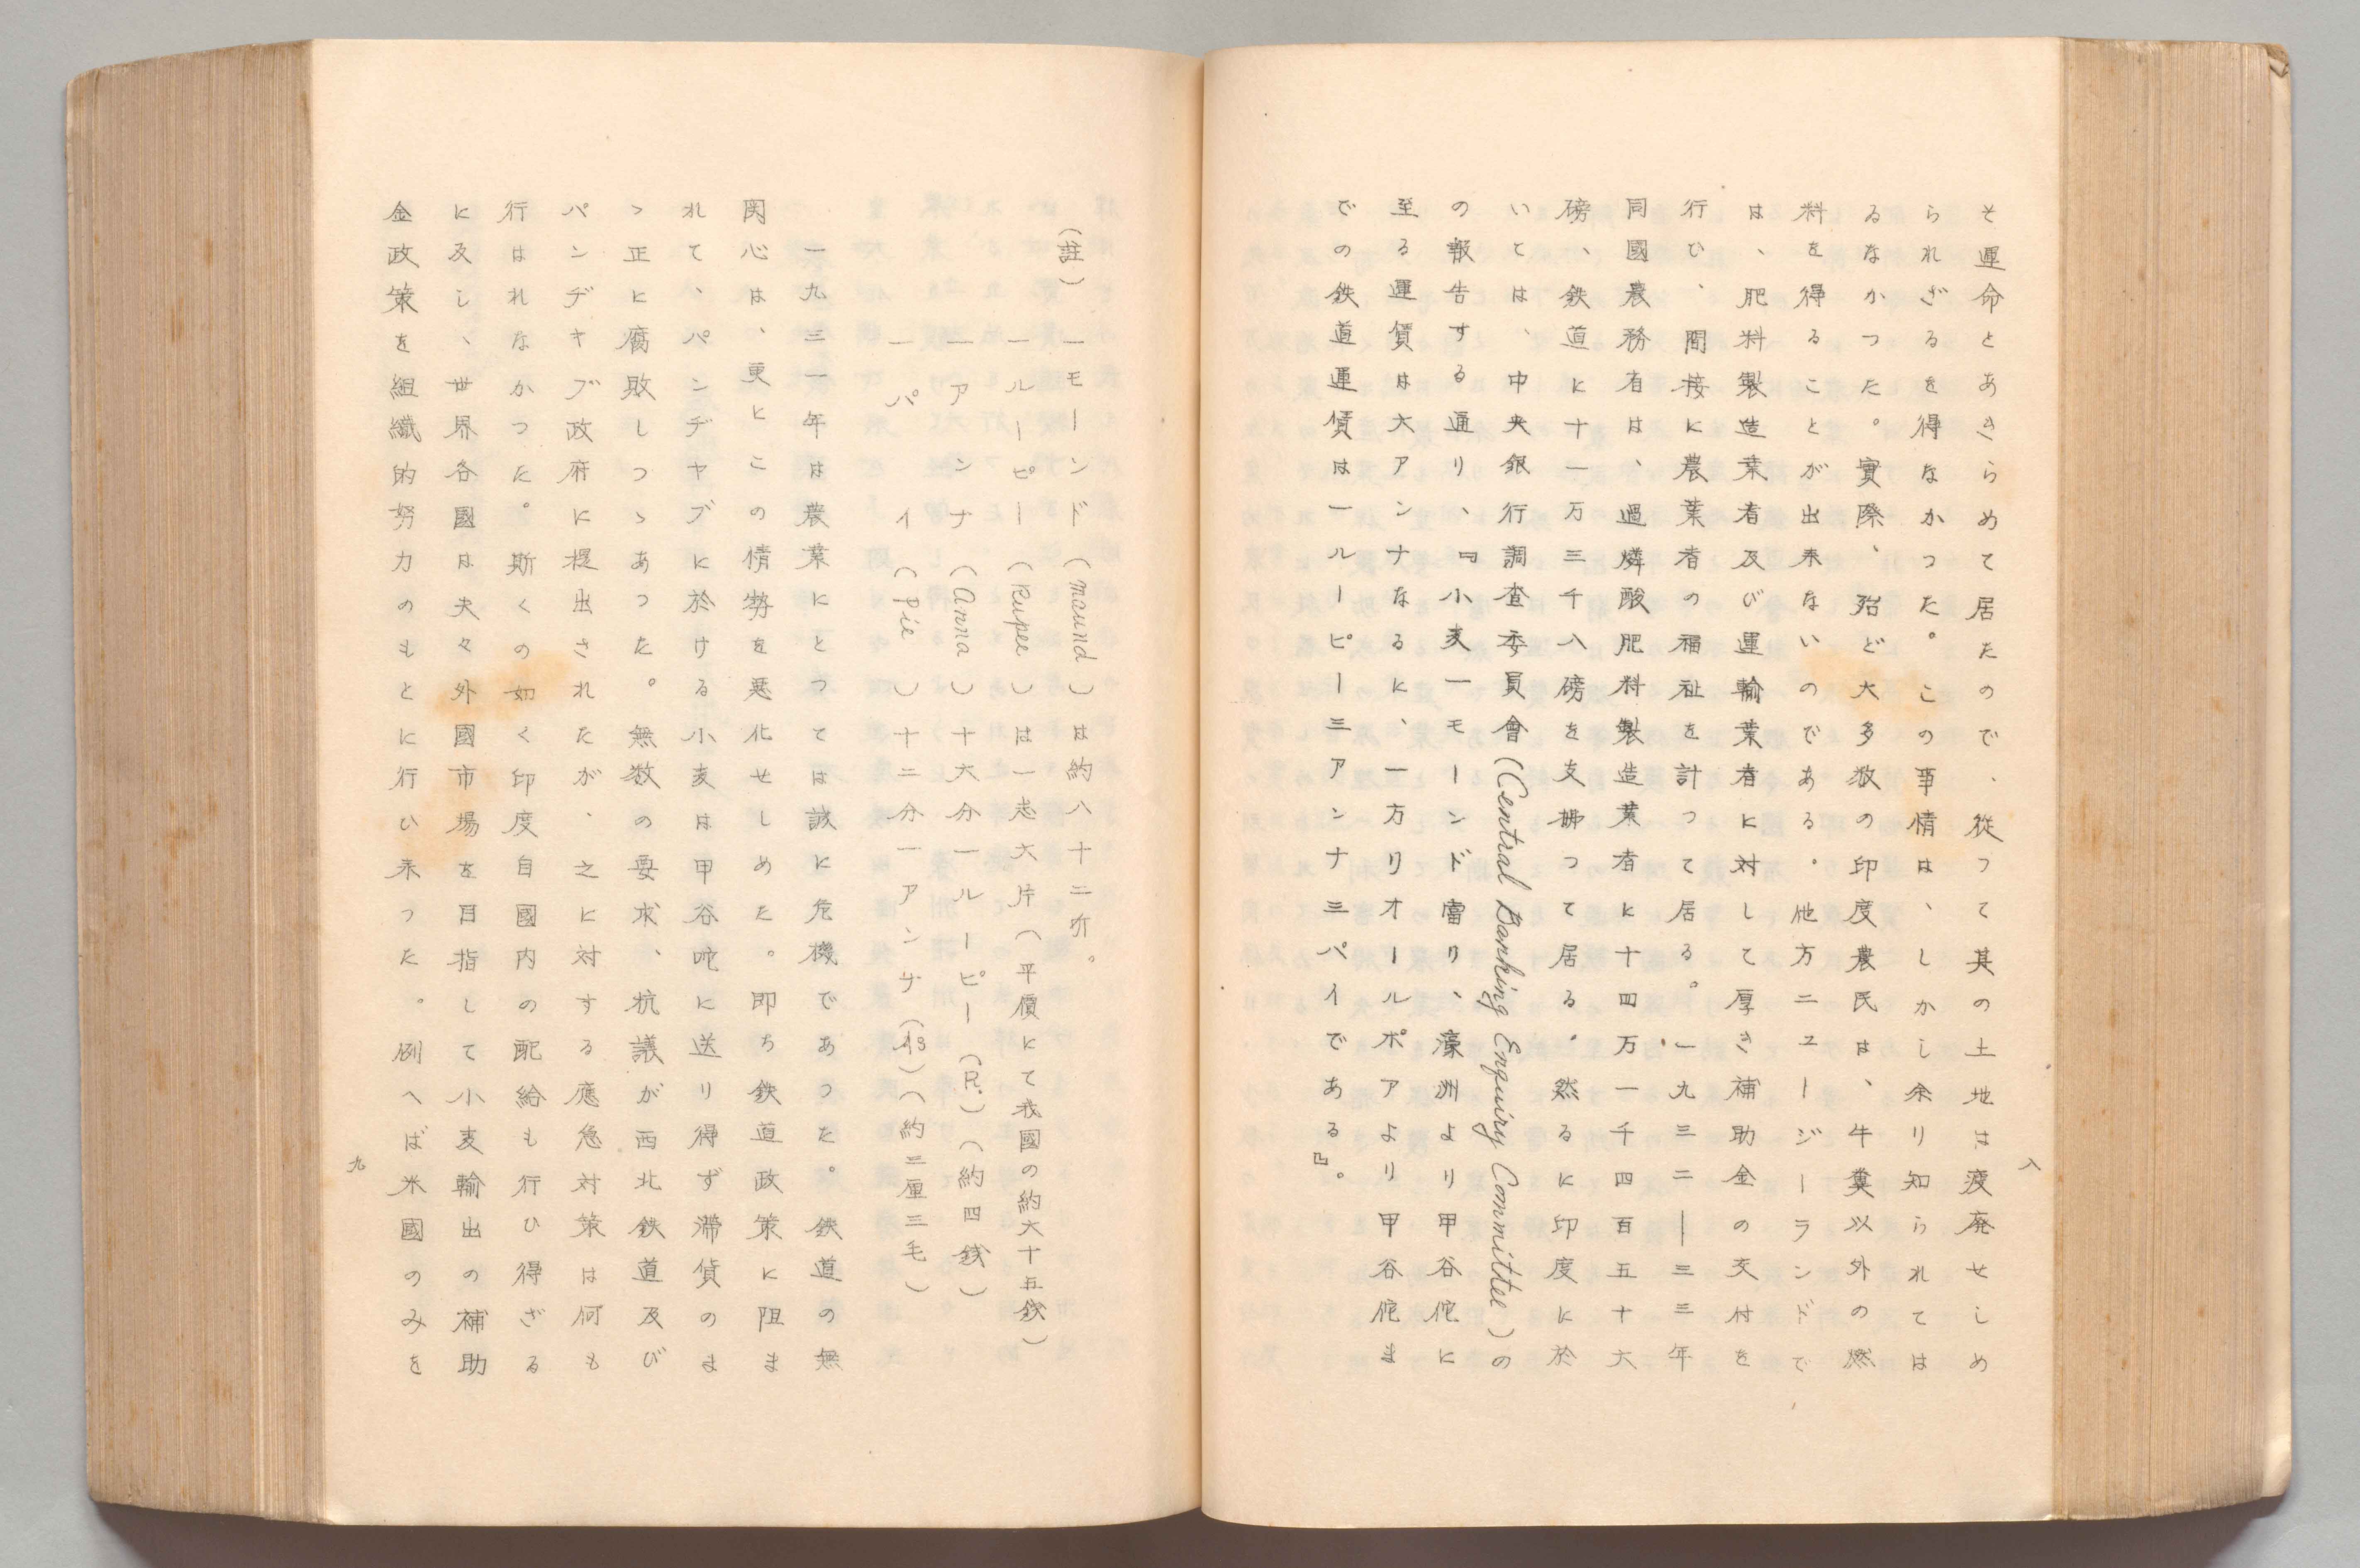 そ運命とあきらめて居たので、從つて其の土地は疲廃せしめ
られざるを得なかつた。この事情は、しかし余り知られては
ゐなかつた。實際、殆ど大多数の印度農民は、牛糞以外の燃
料を得ることが出来ないのである。他方ニユージーランドで
は、肥料製造業者及び運輸業者に対して厚き補助金の交付を
行ひ、間接に農業者の福祉を計つて居る。一九三二―三三年
同國農務省は、過燐酸肥料製造業者に十四万一千四百五十六
磅、鉄道に十一万三千八磅を支拂つて居る。然るに印度に於
いては、中央銀行調査委員會(Central Banking Enquiry Committee)の
の報告する通り、『小麦一モーンド當り、濠洲より甲谷佗に
至る運賃は六アンナなるに、一方リオールポアより甲谷佗ま
での鉄道運賃は一ルーピー三アンナ三パイである』。
八
(註) 一モーンド(maund)は約八十二听。
一ルーピー(Rupee)は一志六片(平價にて我國の約六十五銭)
一アンナ(Anna)十六分一ルーピー(R.)(約四銭)
一パイ(Pie)十二分一アンナ(As)(約三厘三毛)
一九三一年は農業にとつては誠に危機であつた。鉄道の無
関心は、更にこの情勢を悪化せしめた。即ち鉄道政策に阻ま
れて、パンヂヤブに於ける小麦は甲谷佗に送り得ず滞貨のま
ゝ正に腐敗しつゝあつた。無数の要求、抗議が西北鉄道及び
パンヂヤブ政府に提出されたが、之に対する應急対策は何も
行はれなかつた。斯くの如く印度自國内の配給も行ひ得ざる
に及し、世界各國は夫々外國市場を目指して小麦輸出の補助
金政策を組織的努力のもとに行ひ来つた。例へば米國のみを
九